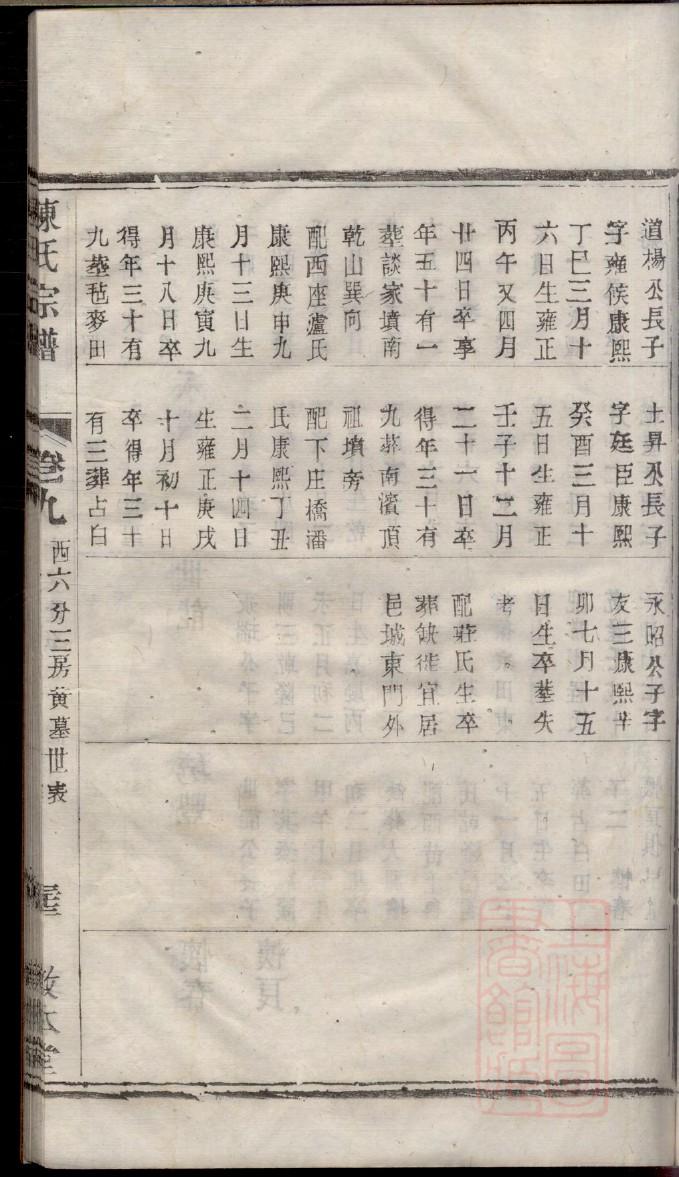 道楊公長子
字雍侯康熙
丁巳三月十
六日生雍正
丙午又四月
廿四日卒享
年五十有一
葬談家墳南
乾山巽向
配西座盧氏
康熙庚申九
月十三日生
康熙庚寅九
月十八日卒
得年三十有
九墓苞麥田
士昇公長子
字廷臣康熙
癸酉三月十
五日生雍正
壬子十二月
二十六日卒
得年三十有
九葬南濱頂
祖墳旁
配下庄橋潘
氏康熙丁丑
二月十四日
生雍正庚戌
十月初十日
卒得年三十
有三葬占白
永昭公子字
友三康熙辛
卯七月十五
日生卒墓失
考
配莊氏生卒
葬缺徙宜居
邑城東門外
陳氏宗譜
卷九
西六分三房黃墓世表
敦本堂
上海圖書館藏